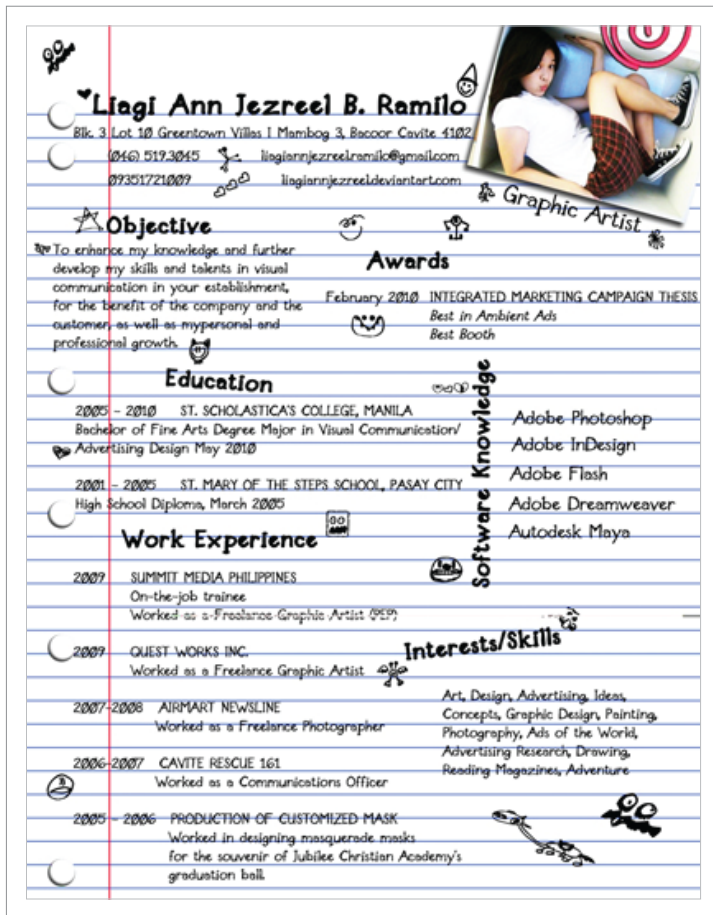 Liagi Ann Jezreel B. Ramilo
Blk. 3 Lot 10 Greentown Villas I Mambog 3, Bacoor Cavite 4102
(046) 519.3045 liagiannjezreel.ramilo@gmail.com
09351721009 liagiannjezreel.deviantart.com
Graphic Artist
Objective
To enhance my knowledge and further
develop my skills and talents in visual
communication in your establishment,
for the benefit of the company and the
customer, as well as mypersonal and
professional growth.
Awards
February 2010 INTEGRATED MARKETING CAMPAIGN THESIS
Best in Ambient Ads
Best Booth
Education
2005 - 2010 ST. SCHOLASTICA'S COLLEGE, MANILA
Bachelor of Fine Arts Degree Major in Visual Communication/
Advertising Design May 2010
2001 - 2005 ST. MARY OF THE STEPS SCHOOL, PASAY CITY
High School Diploma, March 2005
Software Knowledge
Adobe Photoshop
Adobe InDesign
Adobe Flash
Adobe Dreamweaver
Autodesk Maya
Work Experience
2009 SUMMIT MEDIA PHILIPPINES
On-the-job trainee
Worked as a Freelance Graphic Artist (PEP)
2009 QUEST WORKS INC.
Worked as a Freelance Graphic Artist
2007-2008 AIRMART NEWSLINE
Worked as a Freelance Photographer
2006-2007 CAVITE RESCUE 161
Worked as a Communications Officer
2005 - 2006 PRODUCTION OF CUSTOMIZED MASK
Worked in designing masquerade masks
for the souvenir of Jubilee Christian Academy's
graduation ball.
Interests/Skills
Art, Design, Advertising, Ideas,
Concepts, Graphic Design, Painting,
Photography, Ads of the World,
Advertising Research, Drawing,
Reading Magazines, Adventure